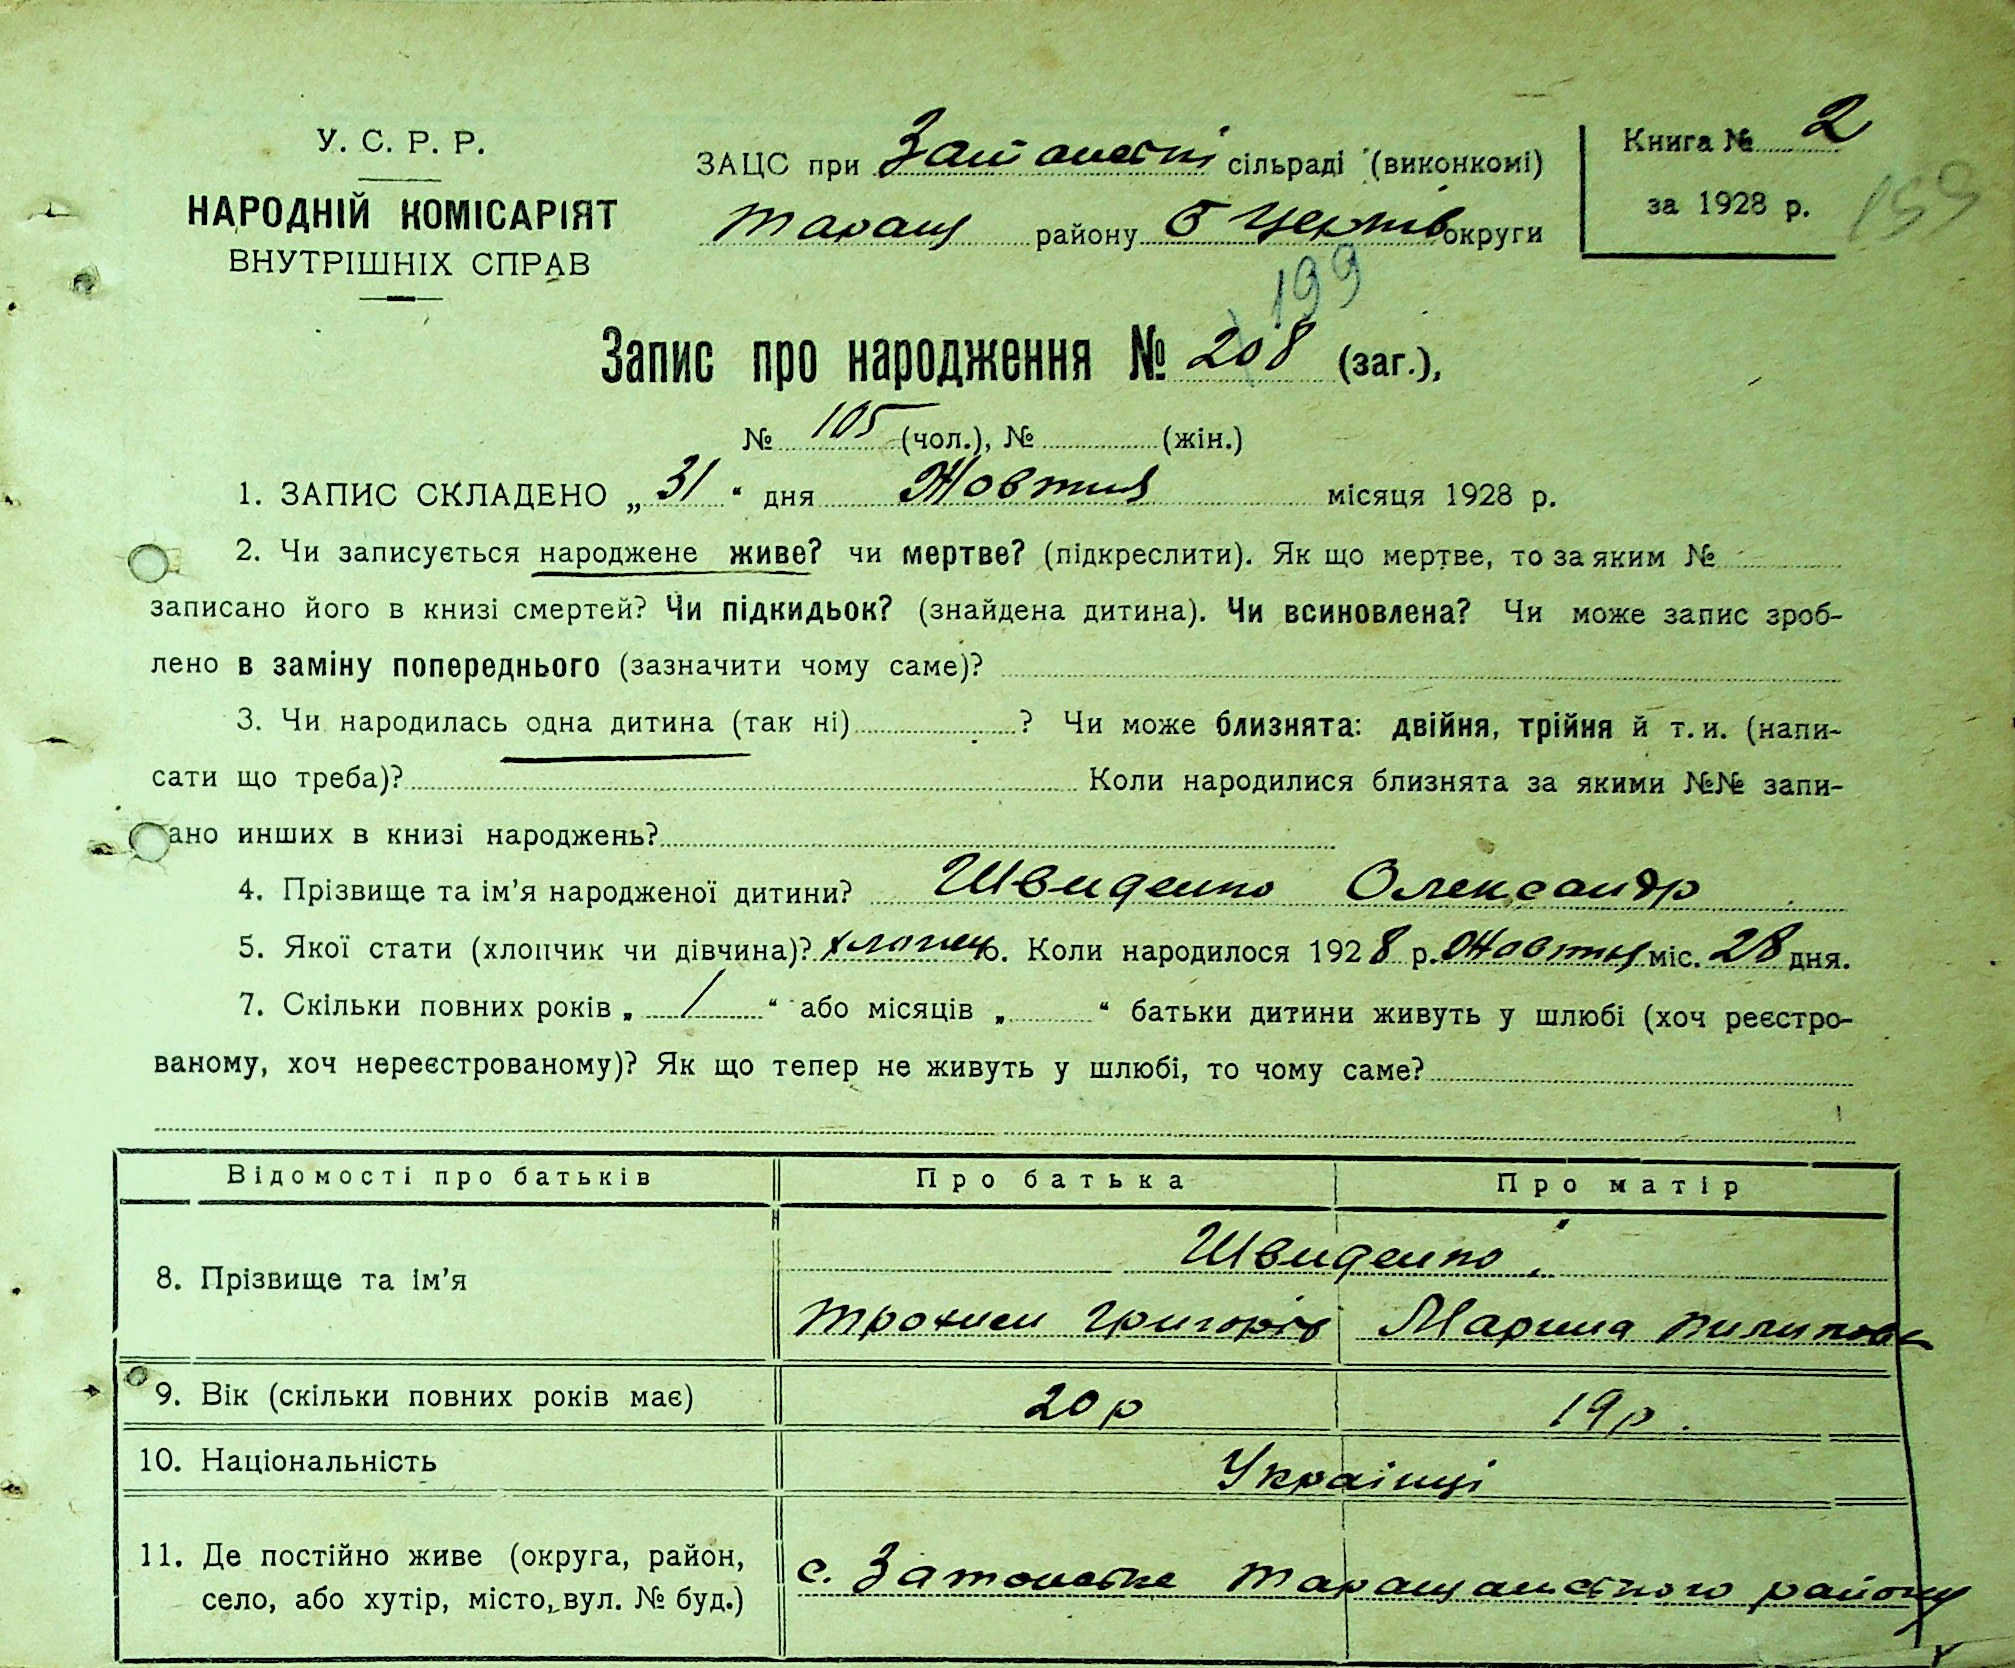 У. С. Р. Р.
НАРОДНІЙ КОМІСАРІЯТ
ВНУТРІШНІХ СПРАВ
ЗАЦС при сільраді (виконкомі)
Таращ району Б Церків округи
Книга № 2
за 1928 р.
159
199
Запис про народження № 208 (заг.),
№ 105 (чол.), № (жін.)
1. ЗАПИС СКЛАДЕНО „31“ дня Жовтня місяця 1928 р.
2. Чи записується народжене живе? чи мертве? (підкреслити). Як що мертве, то за яким №
записано його в книзі смертей? Чи підкидьок? (знайдена дитина). Чи всиновлена? Чи може запис зроб-
лено в заміну попереднього (зазначити чому саме)?
3. Чи народилась одна дитина (так ні) ? Чи може близнята: двійня, трійня й т. и. (напи-
сати що треба)? Коли народилися близнята за якими №№ запи-
ано инших в книзі народжень?
4. Прізвище та ім'я народженої дитини? Швиденко Олександр
5. Якої стати (хлопчик чи дівчина)? хлопець 6. Коли народилося 1928 р. Жовтня міс. 28 дня.
7. Скільки повних років „ / “ або місяців „ “ батьки дитини живуть у шлюбі (хоч реєстро-
ваному, хоч нереєстрованому)? Як що тепер не живуть у шлюбі, то чому саме?
Відомості про батьків Про батька Про матір
8. Прізвище та ім'я Швиденко
Трохим Григорів Марина Пилипова
9. Вік (скільки повних років має) 20 р 19 р.
10. Національність Українці
11. Де постійно живе (округа, район,
село, або хутір, місто, вул. № буд.)
с. Затонське Таращанського району